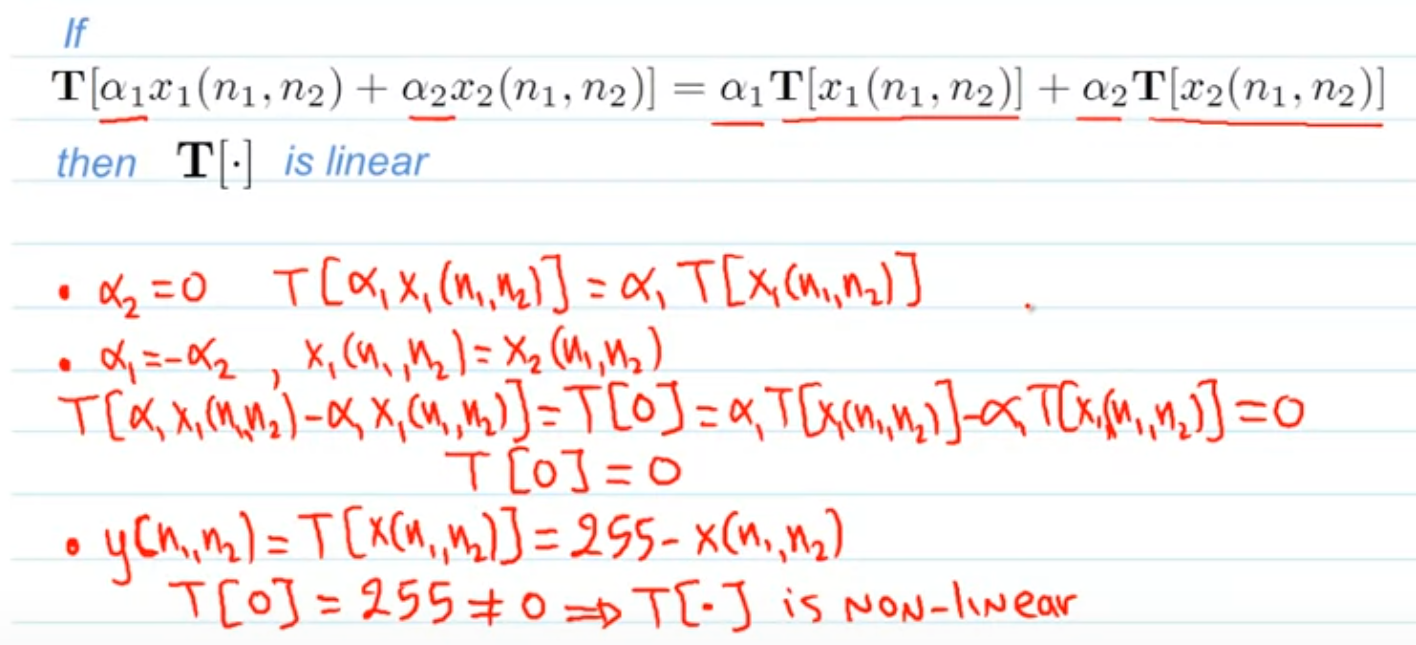 If
T[α₁x₁(n₁, n₂) + α₂x₂(n₁, n₂)] = α₁T[x₁(n₁, n₂)] + α₂T[x₂(n₁, n₂)]
then T[·] is linear
• α₂ = 0 T[α₁x₁(n₁,n₂)] = α₁T[x₁(n₁,n₂)]
• α₁ = -α₂ , x₁(n₁,n₂) = x₂(n₁,n₂)
T[α₁x₁(n₁n₂) - α₁x₁(n₁,n₂)] = T[0] = α₁T[x₁(n₁,n₂)] - α₁T[x₁(n₁,n₂)] = 0
T[0] = 0
• y(n₁,n₂) = T[x(n₁,n₂)] = 255 - x(n₁,n₂)
T[0] = 255 ≠ 0 ⇒ T[·] is NON-liNear